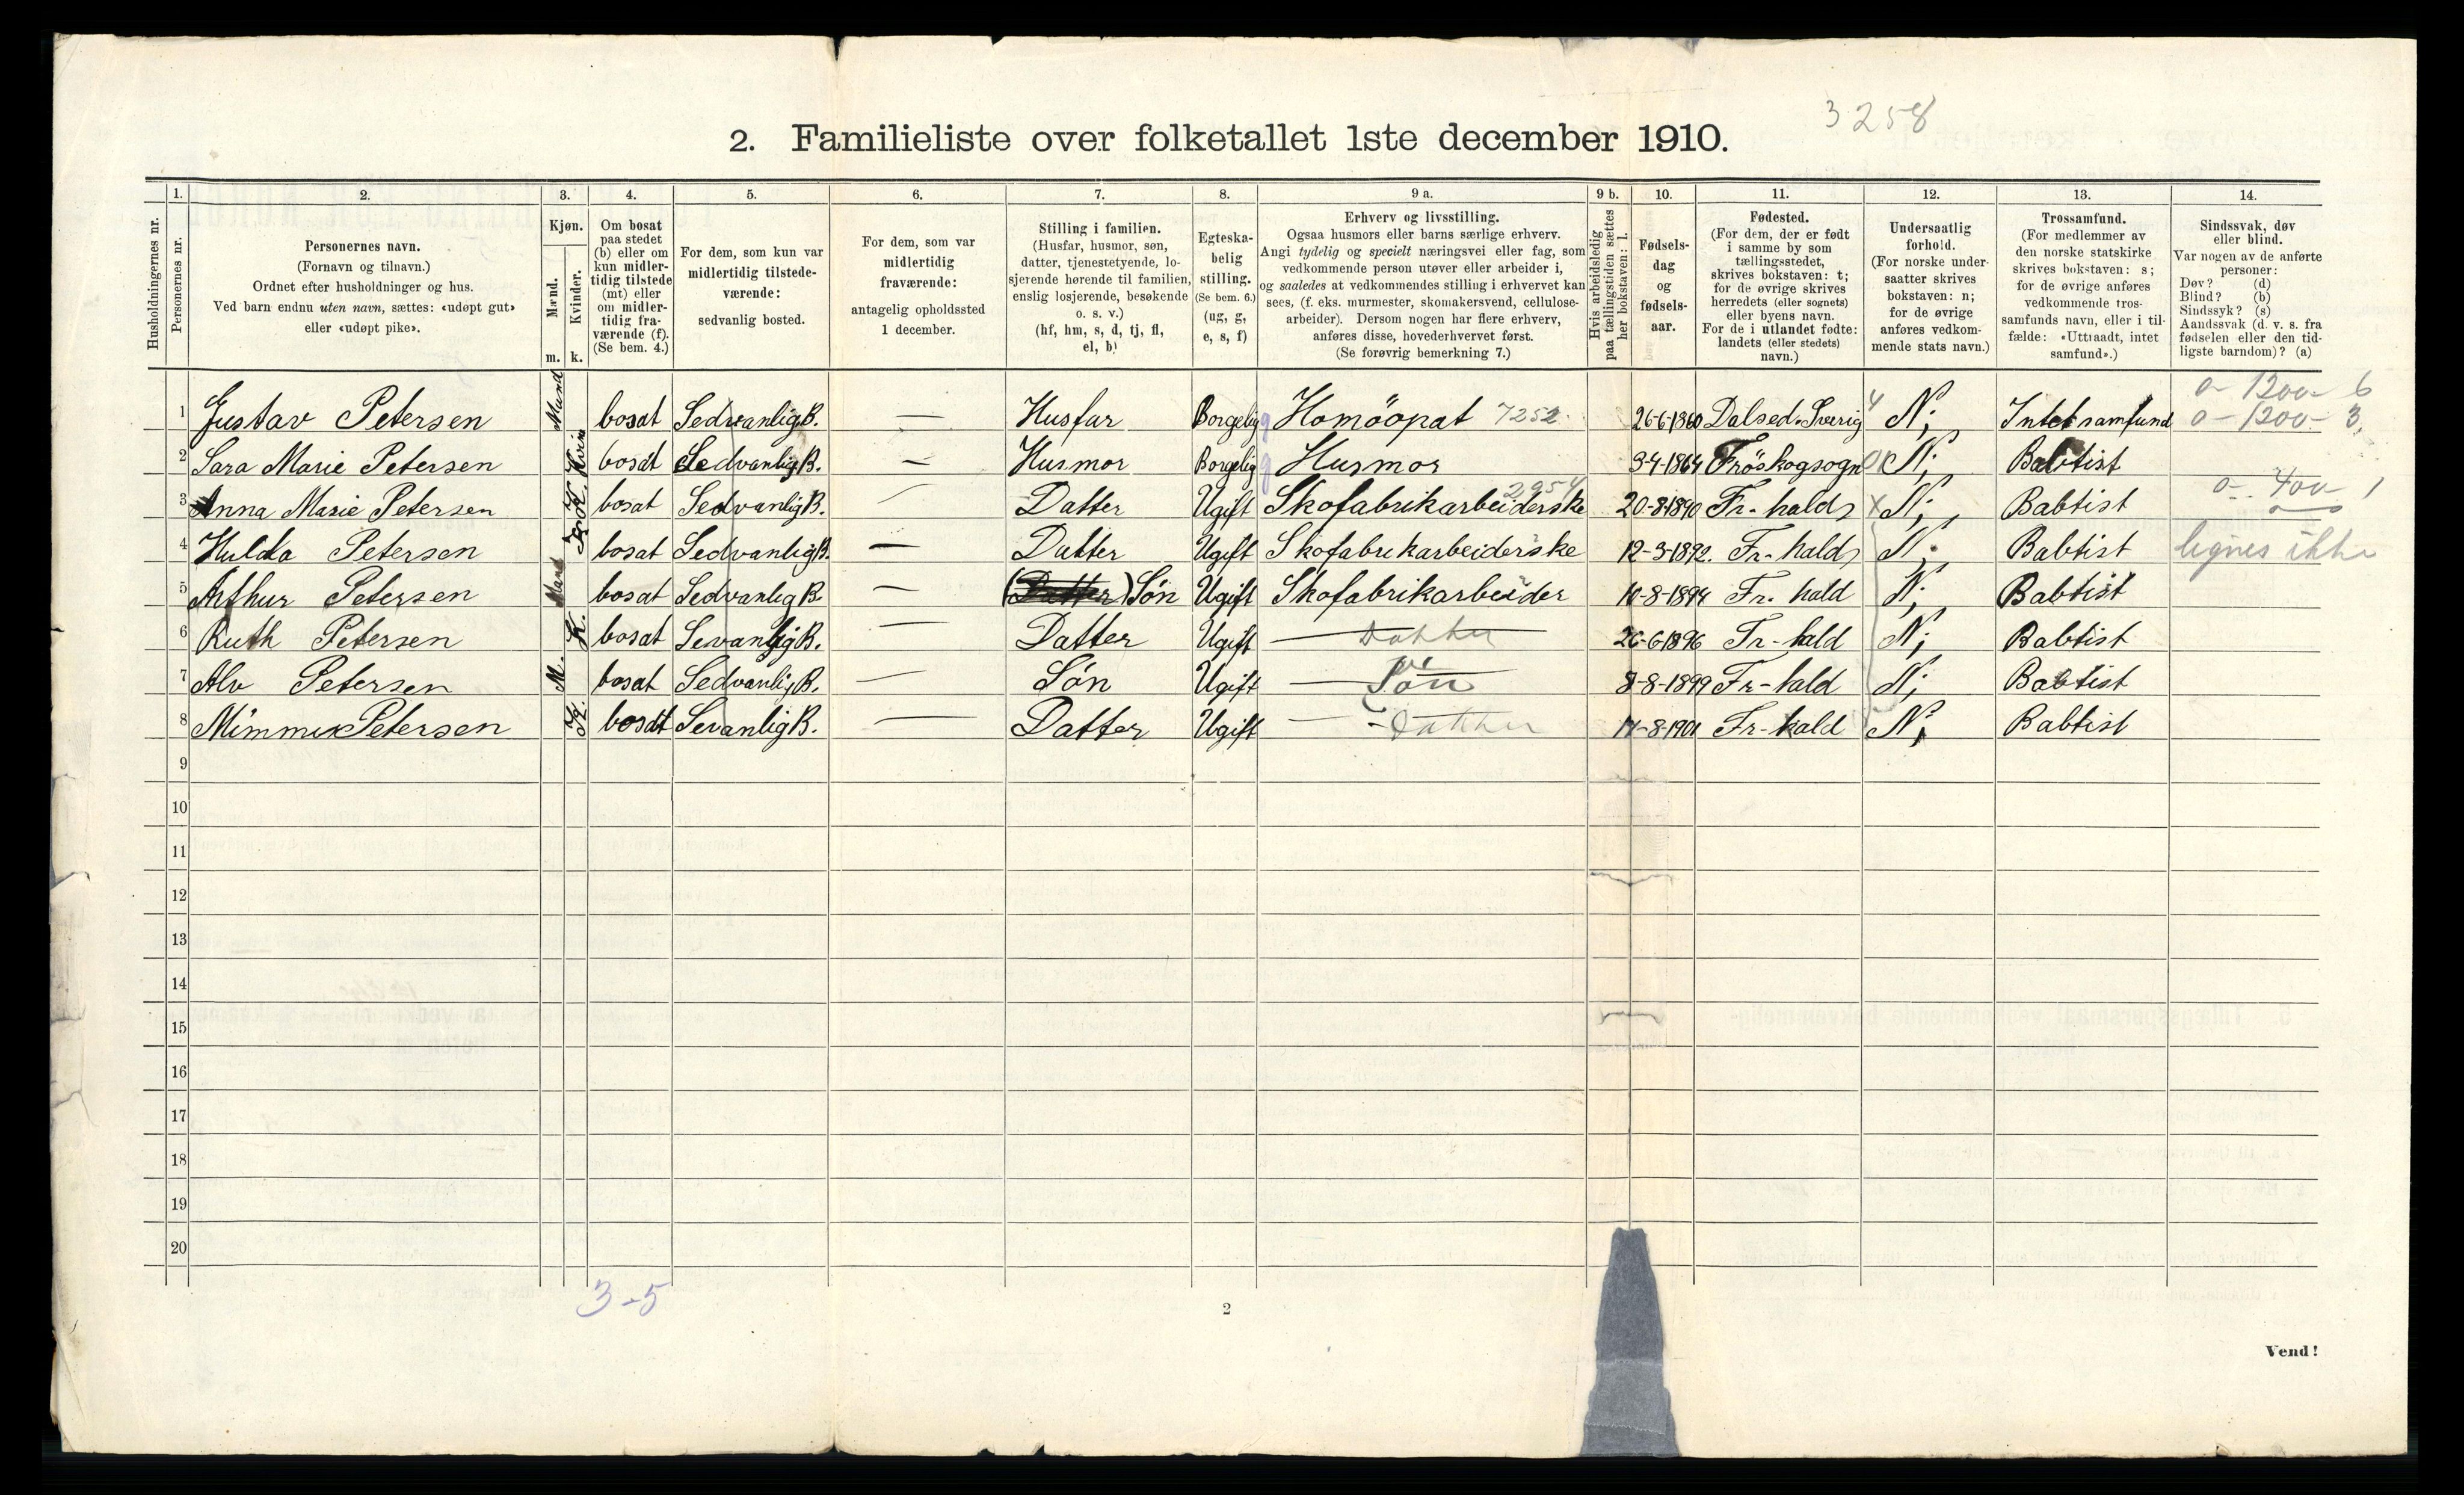 3258
2. Familieliste over folketallet 1ste december 1910.
1. 2. 3. 4. 5. 6. 7. 8. 9 a. 9 b. 10. 11. 12. 13. 14.
Husholdningernes nr.
Personernes nr.
Personernes navn.
(Fornavn og tilnavn.)
Ordnet efter husholdninger og hus.
Ved barn endnu uten navn, sættes: «udøpt gut»
eller «udøpt pike».
Kjøn.
Mænd.
Kvinder.
m. k.
Om bosat
paa stedet
(b) eller om
kun midler-
tidig tilstede
(mt) eller
om midler-
tidig fra-
værende (f).
(Se bem. 4.)
For dem, som kun var
midlertidig tilstede-
værende:
sedvanlig bosted.
For dem, som var
midlertidig
fraværende:
antagelig opholdssted
1 december.
Stilling i familien.
(Husfar, husmor, søn,
datter, tjenestetyende, lo-
sjerende hørende til familien,
enslig losjerende, besøkende
o. s. v.)
(hf, hm, s, d, tj, fl,
el, b)
Egteska-
belig
stilling.
(Se bem. 6.)
(ug, g,
e, s, f)
Erhverv og livsstilling.
Ogsaa husmors eller barns særlige erhverv.
Angi tydelig og specielt næringsvei eller fag, som
vedkommende person utøver eller arbeider i,
og saaledes at vedkommendes stilling i erhvervet kan
sees, (f. eks. murmester, skomakersvend, cellulose-
arbeider). Dersom nogen har flere erhverv,
anføres disse, hovederhvervet først.
(Se forøvrig bemerkning 7.)
Hvis arbeidsledig
paa tællingstiden sættes
her bokstaven: l.
Fødsels-
dag
og
fødsels-
aar.
Fødested.
(For dem, der er født
i samme by som
tællingsstedet,
skrives bokstaven: t;
for de øvrige skrives
herredets (eller sognets)
eller byens navn.
For de i utlandet fødte:
landets (eller stedets)
navn.)
Undersaatlig
forhold.
(For norske under-
saatter skrives
bokstaven: n;
for de øvrige
anføres vedkom-
mende stats navn.)
Trossamfund.
(For medlemmer av
den norske statskirke
skrives bokstaven: s;
for de øvrige anføres
vedkommende tros-
samfunds navn, eller i til-
fælde: «Uttraadt, intet
samfund».)
Sindssvak, døv
eller blind.
Var nogen av de anførte
personer:
Døv? (d)
Blind? (b)
Sindssyk? (s)
Aandssvak (d. v. s. fra
fødselen eller den tid-
ligste barndom)? (a)
o- 1200- 6
1 Gustav Petersen Mand bosat Sedvanlig B. — Husfar Borgelig g Homöopat 7252 26-6-1860 Dalsed. Sverig N; Intet samfund o- 1200- 3
2 Sara Marie Petersen Kvin bosat Sedvanlig B. — Husmor Borgelig g Husmor 3-4-1864 Fröskogsogn N; Babtist
3 Anna Marie Petersen K. bosat Sedvanlig B. — Datter Ugift Skofabrikarbeiderske 20-8-1890 Fr-hald N; Babtist o- 400- 1
4 Hulda Petersen K bosat Sedvanlig B. — Datter Ugift Skofabrikarbeiderske 12-3-1892. Fr-hald N; Babtist lignes ikke
5 Arthur Petersen Mand bosat Sedvanlig B. — (Datter) Søn Ugift Skofabrikarbeider 10-8-1894 Fr. hald N; Babtist
6 Ruth Petersen K. bosat Sevanlig B. — Datter Ugift Datter 26-6-1896 Fr-hald N; Babtist
7 Alv Petersen M. bosat Sedvanlig B. — Són Ugift Søn 8-8-1899 Fr-hald N; Babtist
8 Mimmi Petersen K. bosat Sevanlig B. — Datter Ugift Datter 14-8-1901 Fr-hald N; Babtist
9
10
11
12
13
14
15
16
17
18
19
20
3-5
2
Vend!